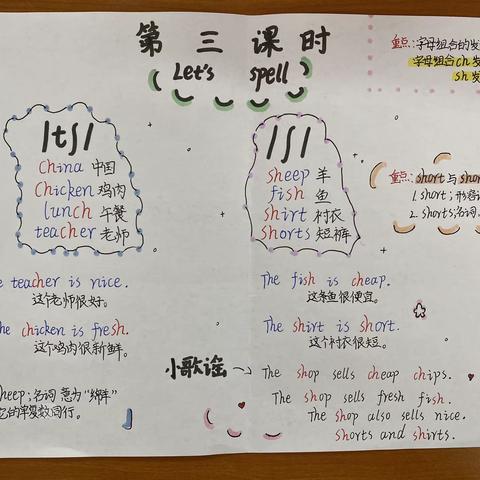 第三课时
(Let's spell)
重点:字母组合的发
字母组合ch发
sh发
/tʃ/
China 中国
chicken 鸡肉
lunch 午餐
teacher 老师
/ʃ/
sheep 羊
fish 鱼
shirt 衬衣
shorts 短裤
重点:short与shor
1.short;形容
2.shorts;名词
e teacher is nice.
这个老师很好。
he chicken is fresh.
这个鸡肉很新鲜。
heep;名词 意为“绵羊”
它的单复数同行。
The fish is cheap.
这条鱼很便宜。
The shirt is short.
这个衬衣很短。
小歌谣→
The shop sells cheap chips.
The shop sells fresh fish.
The shop also sells nice.
shorts and shirts.